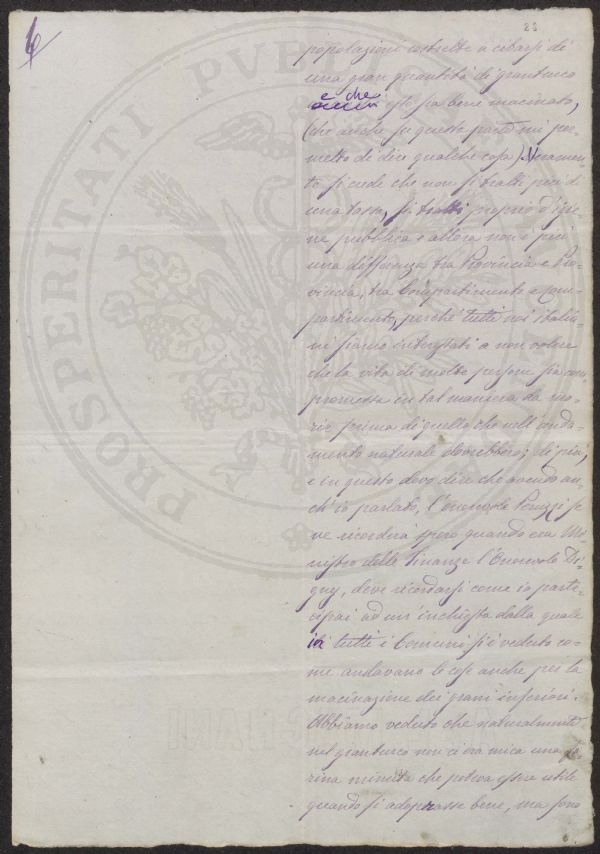 6
28
popolazioni costrette a cibarsi di
una gran quantità di granturco
e che
esso sia bene macinato,
(chè anche su questa parte mi per-
metto di dire qualche cosa). Veramen-
te si vede che non si tratta più di
una tassa, si tratta proprio d'igie-
ne pubblica e allora non è più
una differenza tra Provincia e Pro-
vincia, tra Compartimento e Com-
partimento, perché tutti noi italia-
ni siamo interessati a non volere
che la vita di molte persone sia com-
promessa in tal maniera da mo-
rire prima di quello che nell'anda-
mento naturale dovrebbero; di più,
e in questo devo dire che avendo an-
ch'io parlato, l'onorevole Peruzzi se
ne ricorderà spero quando era Mi-
nistro delle Finanze l'Onorevole Di-
gny, deve ricordarsi come io parte-
cipai ad un'inchiesta dalla quale
in tutti i Comuni si è veduto co-
me andavano le cose anche per la
macinazione dei grani inferiori.
Abbiamo veduto che naturalmente
nel granturco non ci era mica una fa-
rina minuta che poteva essere utile
quando si adoprasse bene, ma sono
PROSPERITATI PVBLICAE